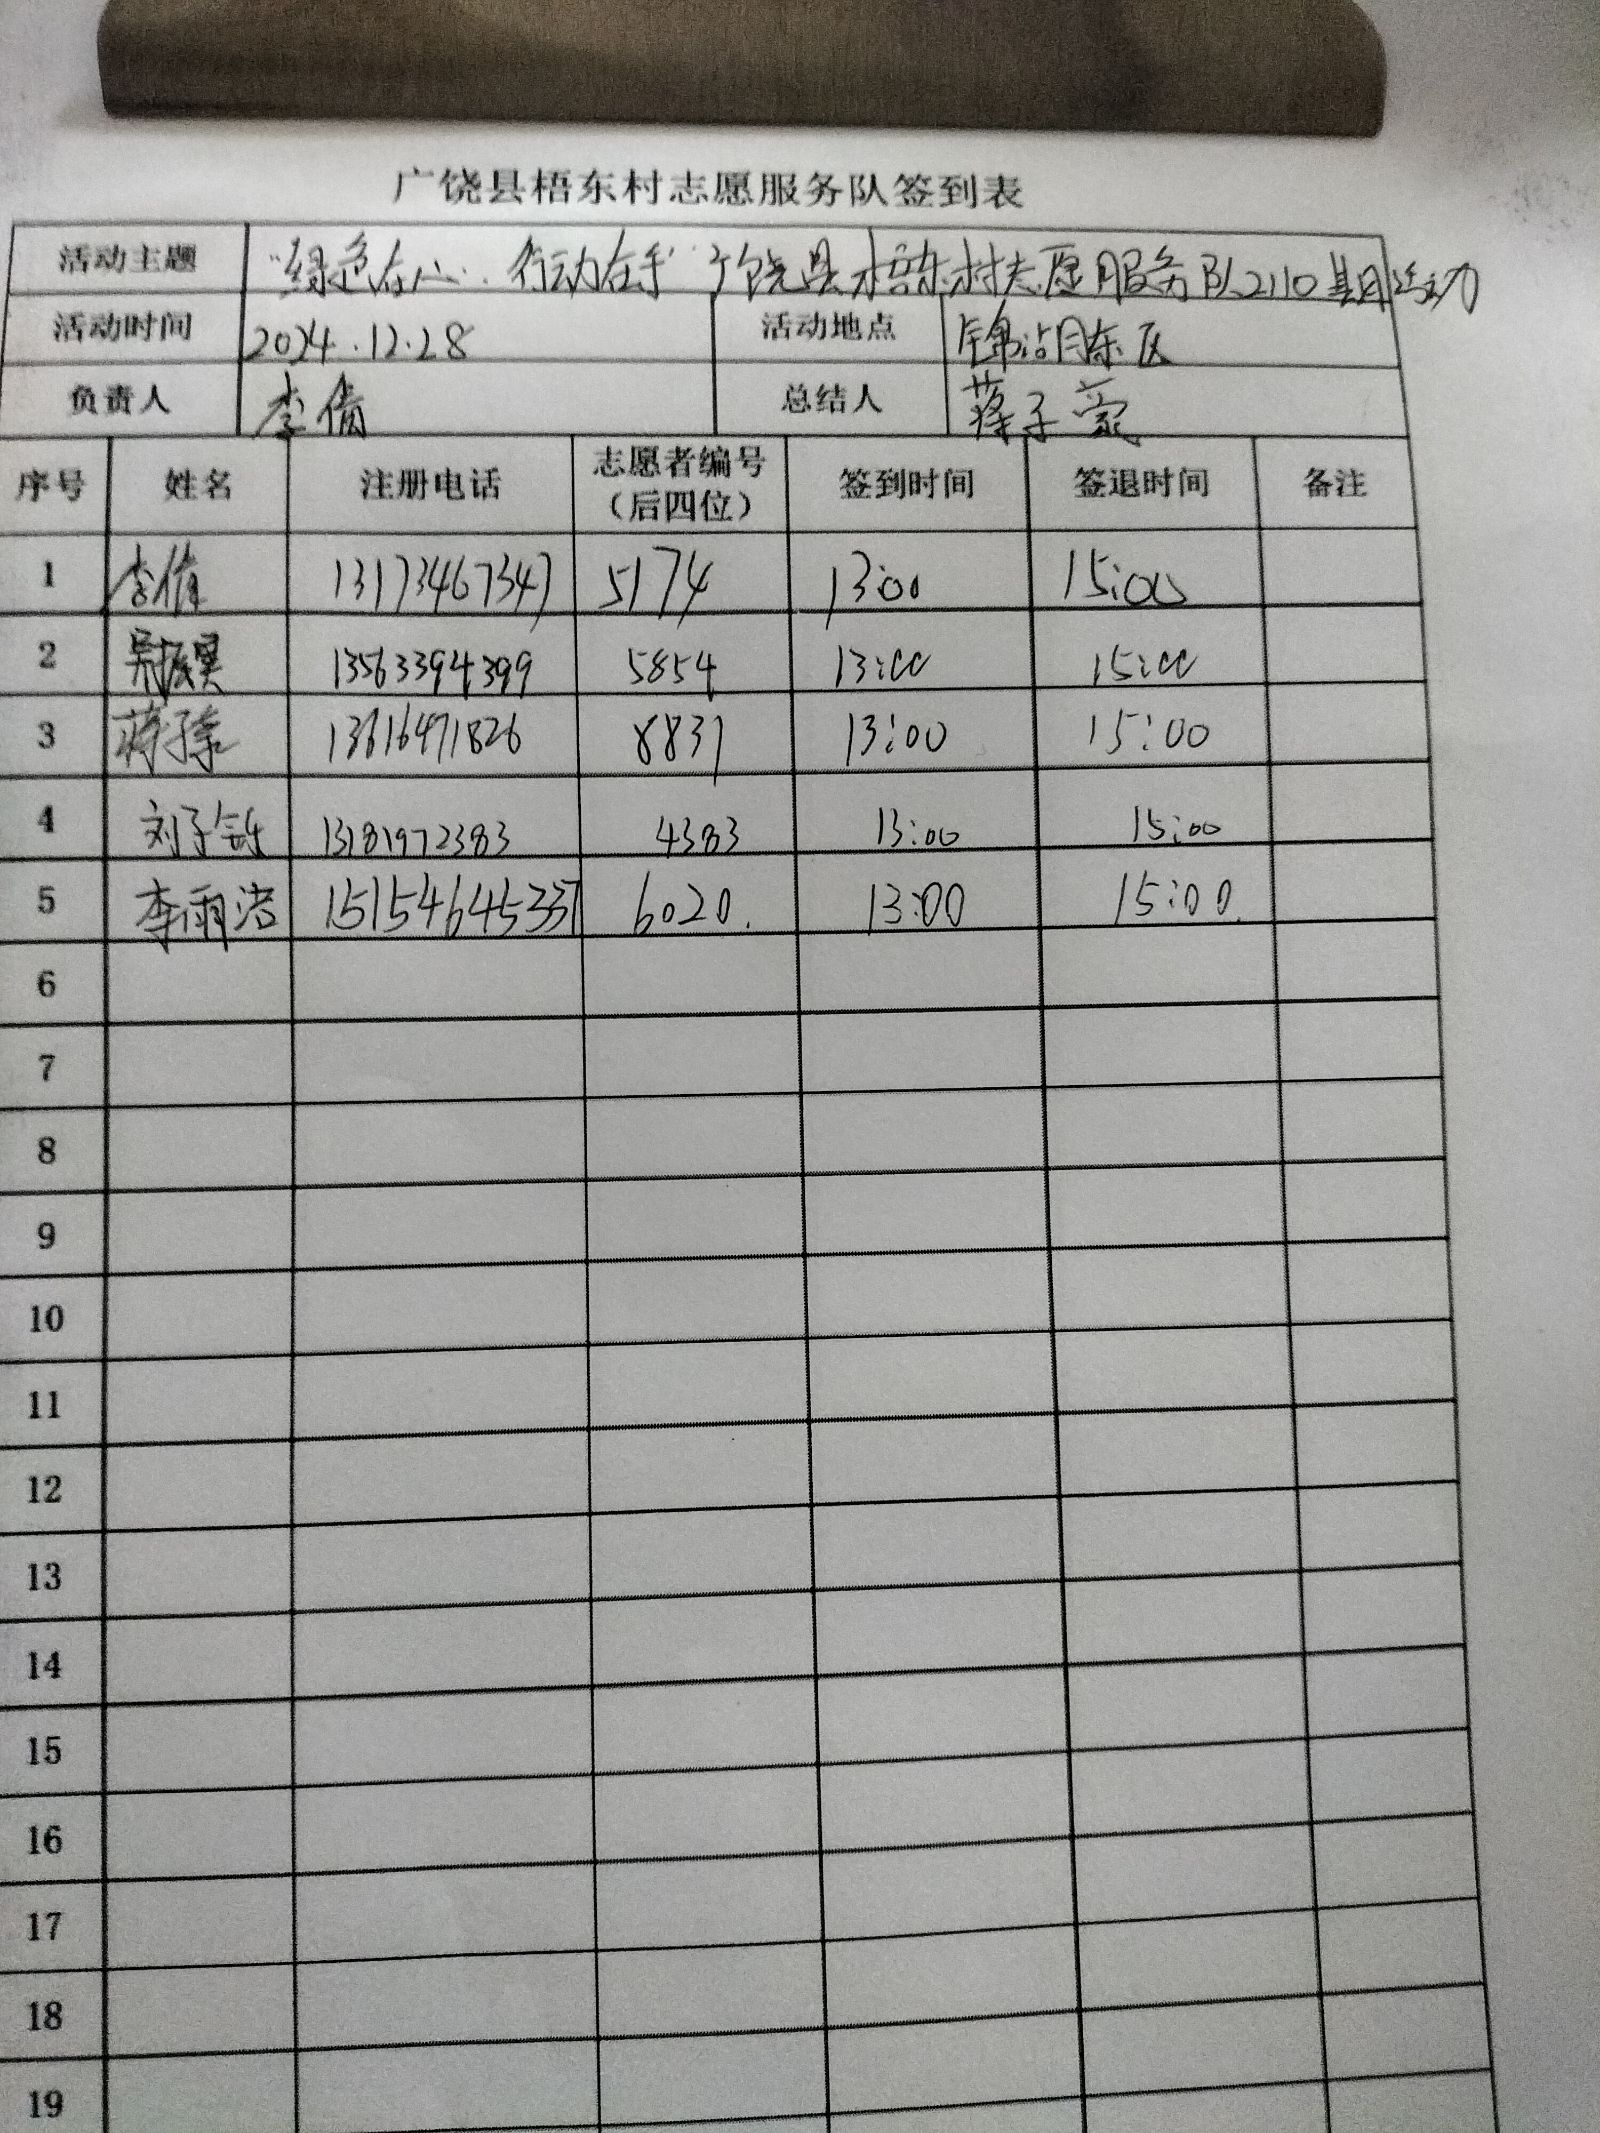 广饶县梧东村志愿服务队签到表
活动主题 "绿色在心,行动在手"广饶县梧东村志愿服务队2110
活动时间 2024.12.28 活动地点 锦湖东区
负责人 李倩 总结人 蒋子
序号 姓名 注册电话 志愿者编号（后四位） 签到时间 签退时间 备注
1 李倩 13173467347 5174 13:00 15:00
2 吴振 13563394399 5854 13:00 15:00
3 蒋子 13616471826 8837 13:00 15:00
4 刘子钰 13181972383 4383 13:00 15:00
5 李雨洁 15154645337 6020. 13:00 15:00.
6
7
8
9
10
11
12
13
14
15
16
17
18
19